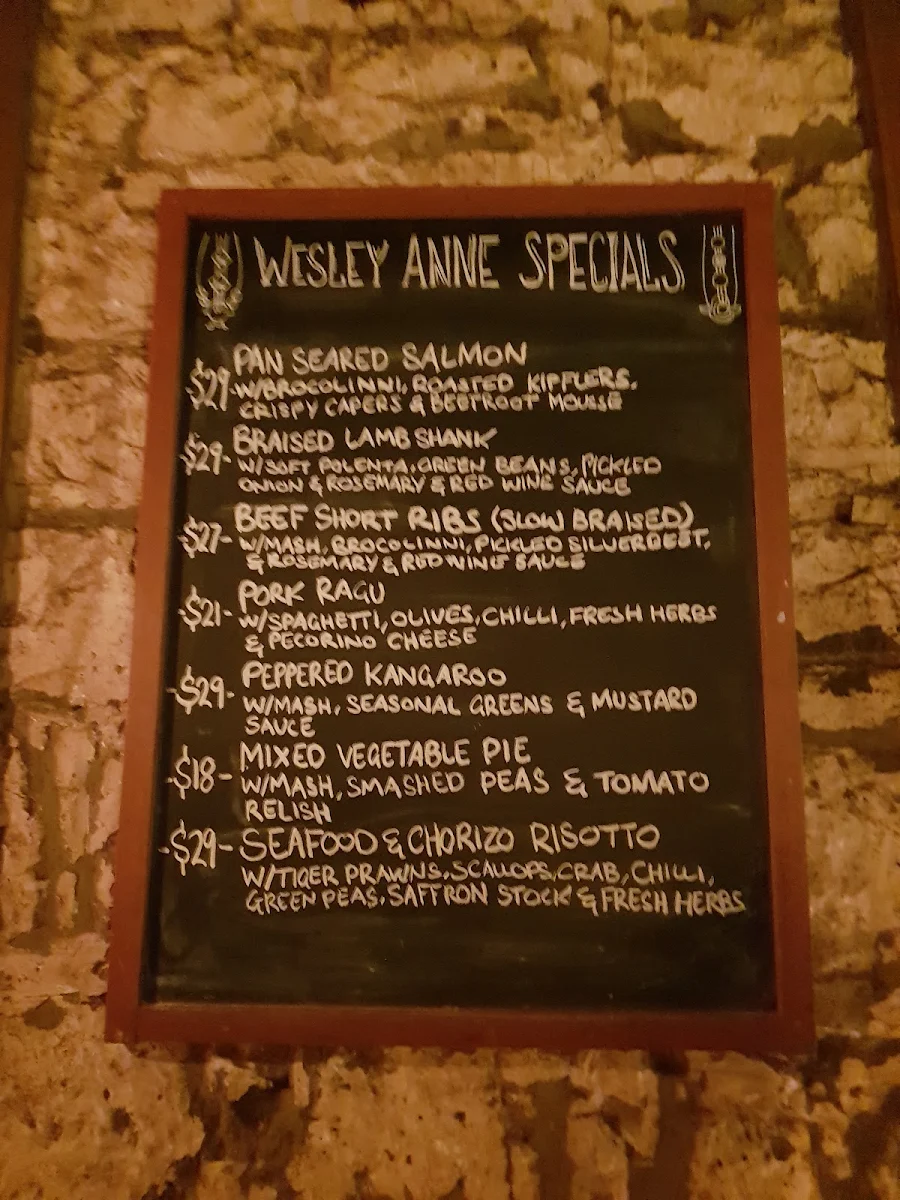 WESLEY ANNE SPECIALS
$29- PAN SEARED SALMON
W/BROCOLINNI, ROASTED KIPFLERS,
CRISPY CAPERS & BEETROOT MOUSSE
-$29- BRAISED LAMB SHANK
W/SOFT POLENTA, GREEN BEANS, PICKLED
ONION & ROSEMARY & RED WINE SAUCE
-$27- BEEF SHORT RIBS (SLOW BRAISED)
W/MASH, BROCOLINNI, PICKLED SILVERBEET,
& ROSEMARY & RED WINE SAUCE
-$21- PORK RAGU
W/SPAGHETTI, OLIVES, CHILLI, FRESH HERBS
& PECORINO CHEESE
-$29- PEPPERED KANGAROO
W/MASH, SEASONAL GREENS & MUSTARD
SAUCE
-$18- MIXED VEGETABLE PIE
W/MASH, SMASHED PEAS & TOMATO
RELISH
-$29- SEAFOOD & CHORIZO RISOTTO
W/TIGER PRAWNS, SCALLOPS, CRAB, CHILLI,
GREEN PEAS, SAFFRON STOCK & FRESH HERBS